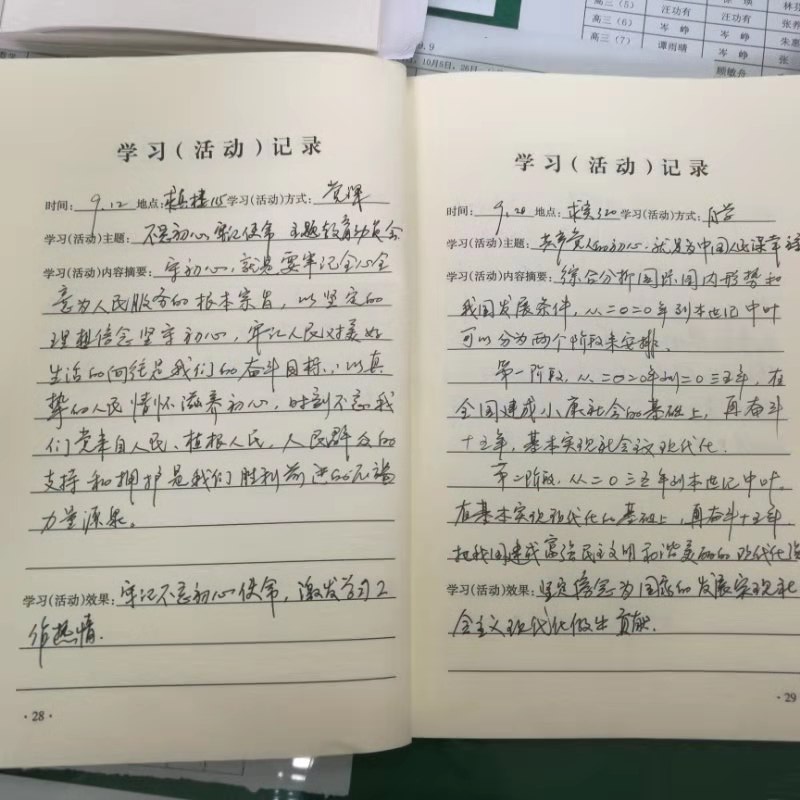 高三（5） 汪功有 林
高三（6） 岑峥 汪功有 张
高三（7） 谭雨晴 岑峥 朱
岑峥 张
顾敏
9.9
10月8日，26日
学习（活动）记录
时间：9.12 地点：求真楼115 学习（活动）方式：党课
学习（活动）主题：不忘初心 牢记使命 主题教育动员会
学习（活动）内容摘要：守初心，就是要牢记全心全
意为人民服务的根本宗旨，以坚定的
理想信念坚守初心，牢记人民对美好
生活的向往是我们的奋斗目标；以真
挚的人民情怀滋养初心，时刻不忘我
们党来自人民、植根人民，人民群众的
支持和拥护是我们胜利前进的不竭
力量源泉。
学习（活动）效果：牢记不忘初心使命，激发学习工
作热情.
·28·
学习（活动）记录
时间：9.28 地点：求真320 学习（活动）方式：自学
学习（活动）主题：共产党人的初心：就是为中国人民谋幸
学习（活动）内容摘要：综合分析国际国内形势和
我国发展条件，从二〇二〇年到本世纪中叶
可以分为两个阶段来安排.
第一阶段，从二〇二〇年到二〇三五年，在
全国建成小康社会的基础上，再奋斗
十五年，基本实现社会主义现代化.
第二阶段，从二〇三五年到本世纪中叶，
在基本实现现代化的基础上，再奋斗十五年.
把我国建成富强民主文明和谐美丽的现代化强
学习（活动）效果：坚定信念为国家的发展实现社
会主义现代化做出贡献.
·29